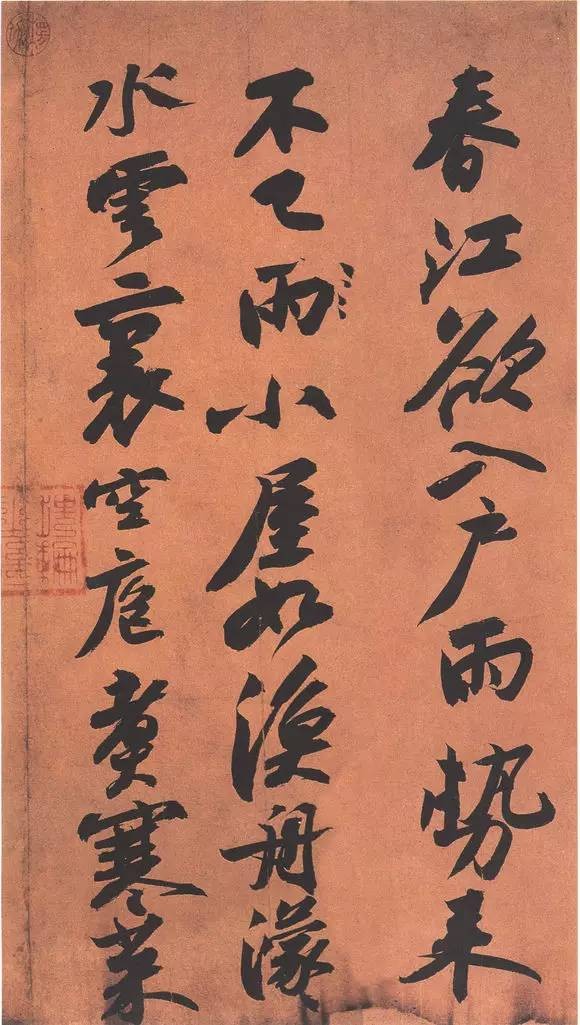 春江欲入戶雨勢来
不已雨小屋如漁舟濛
水雲裏空庖煮寒菜